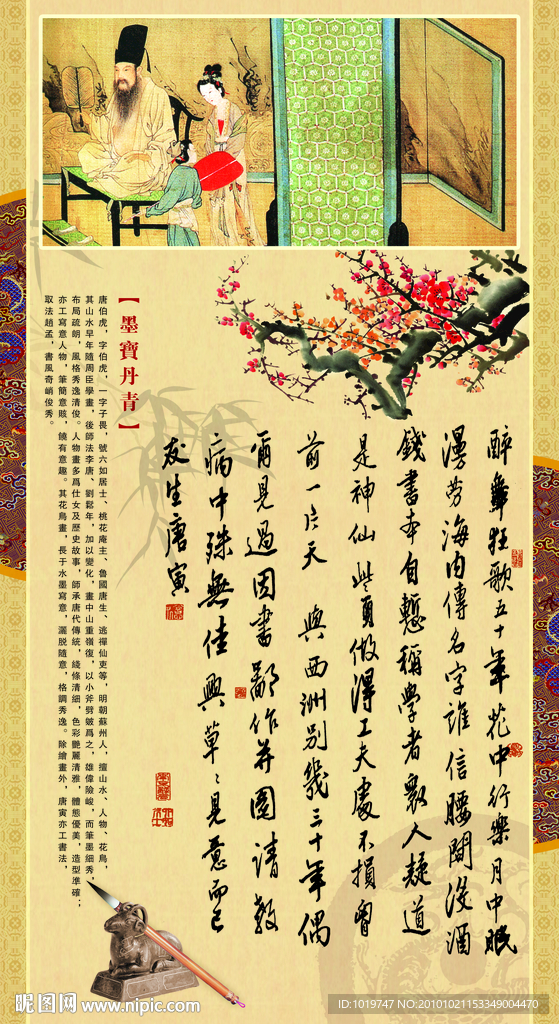 【墨寶丹青】
唐伯虎，字伯虎，一字子畏，號六如居士、桃花庵主、魯國唐生、逃禪仙吏等，明朝蘇州人，擅山水、人物、花鳥，
其山水早年隨周臣學畫，後師法李唐、劉鬆年，加以變化，畫中山重嶺復，以小斧劈皴爲之，雄偉險峻，而筆墨細秀，
布局疏朗，風格秀逸清俊。人物畫多爲仕女及歷史故事，師承唐代傳統，綫條清細，色彩艷麗清雅，體態優美，造型準確；
亦工寫意人物，筆簡意賅，饒有意趣。其花鳥畫，長于水墨寫意，灑脱隨意，格調秀逸。除繪畫外，唐寅亦工書法，
取法趙孟，書風奇峭俊秀。
醉舞狂歌五十年花中行樂月中眠
漫勞海内傳名字誰信腰間沒酒
錢書本自慙稱學者衆人疑道
是神仙些須做得工夫處不損胸
前一片天 與西洲别幾三十年偶
爾見過因書鄙作并圖請教
病中殊無佳興草〻見意而已
友生唐寅
昵图网 www.nipic.com
ID:1019747 NO:20101021153349004470